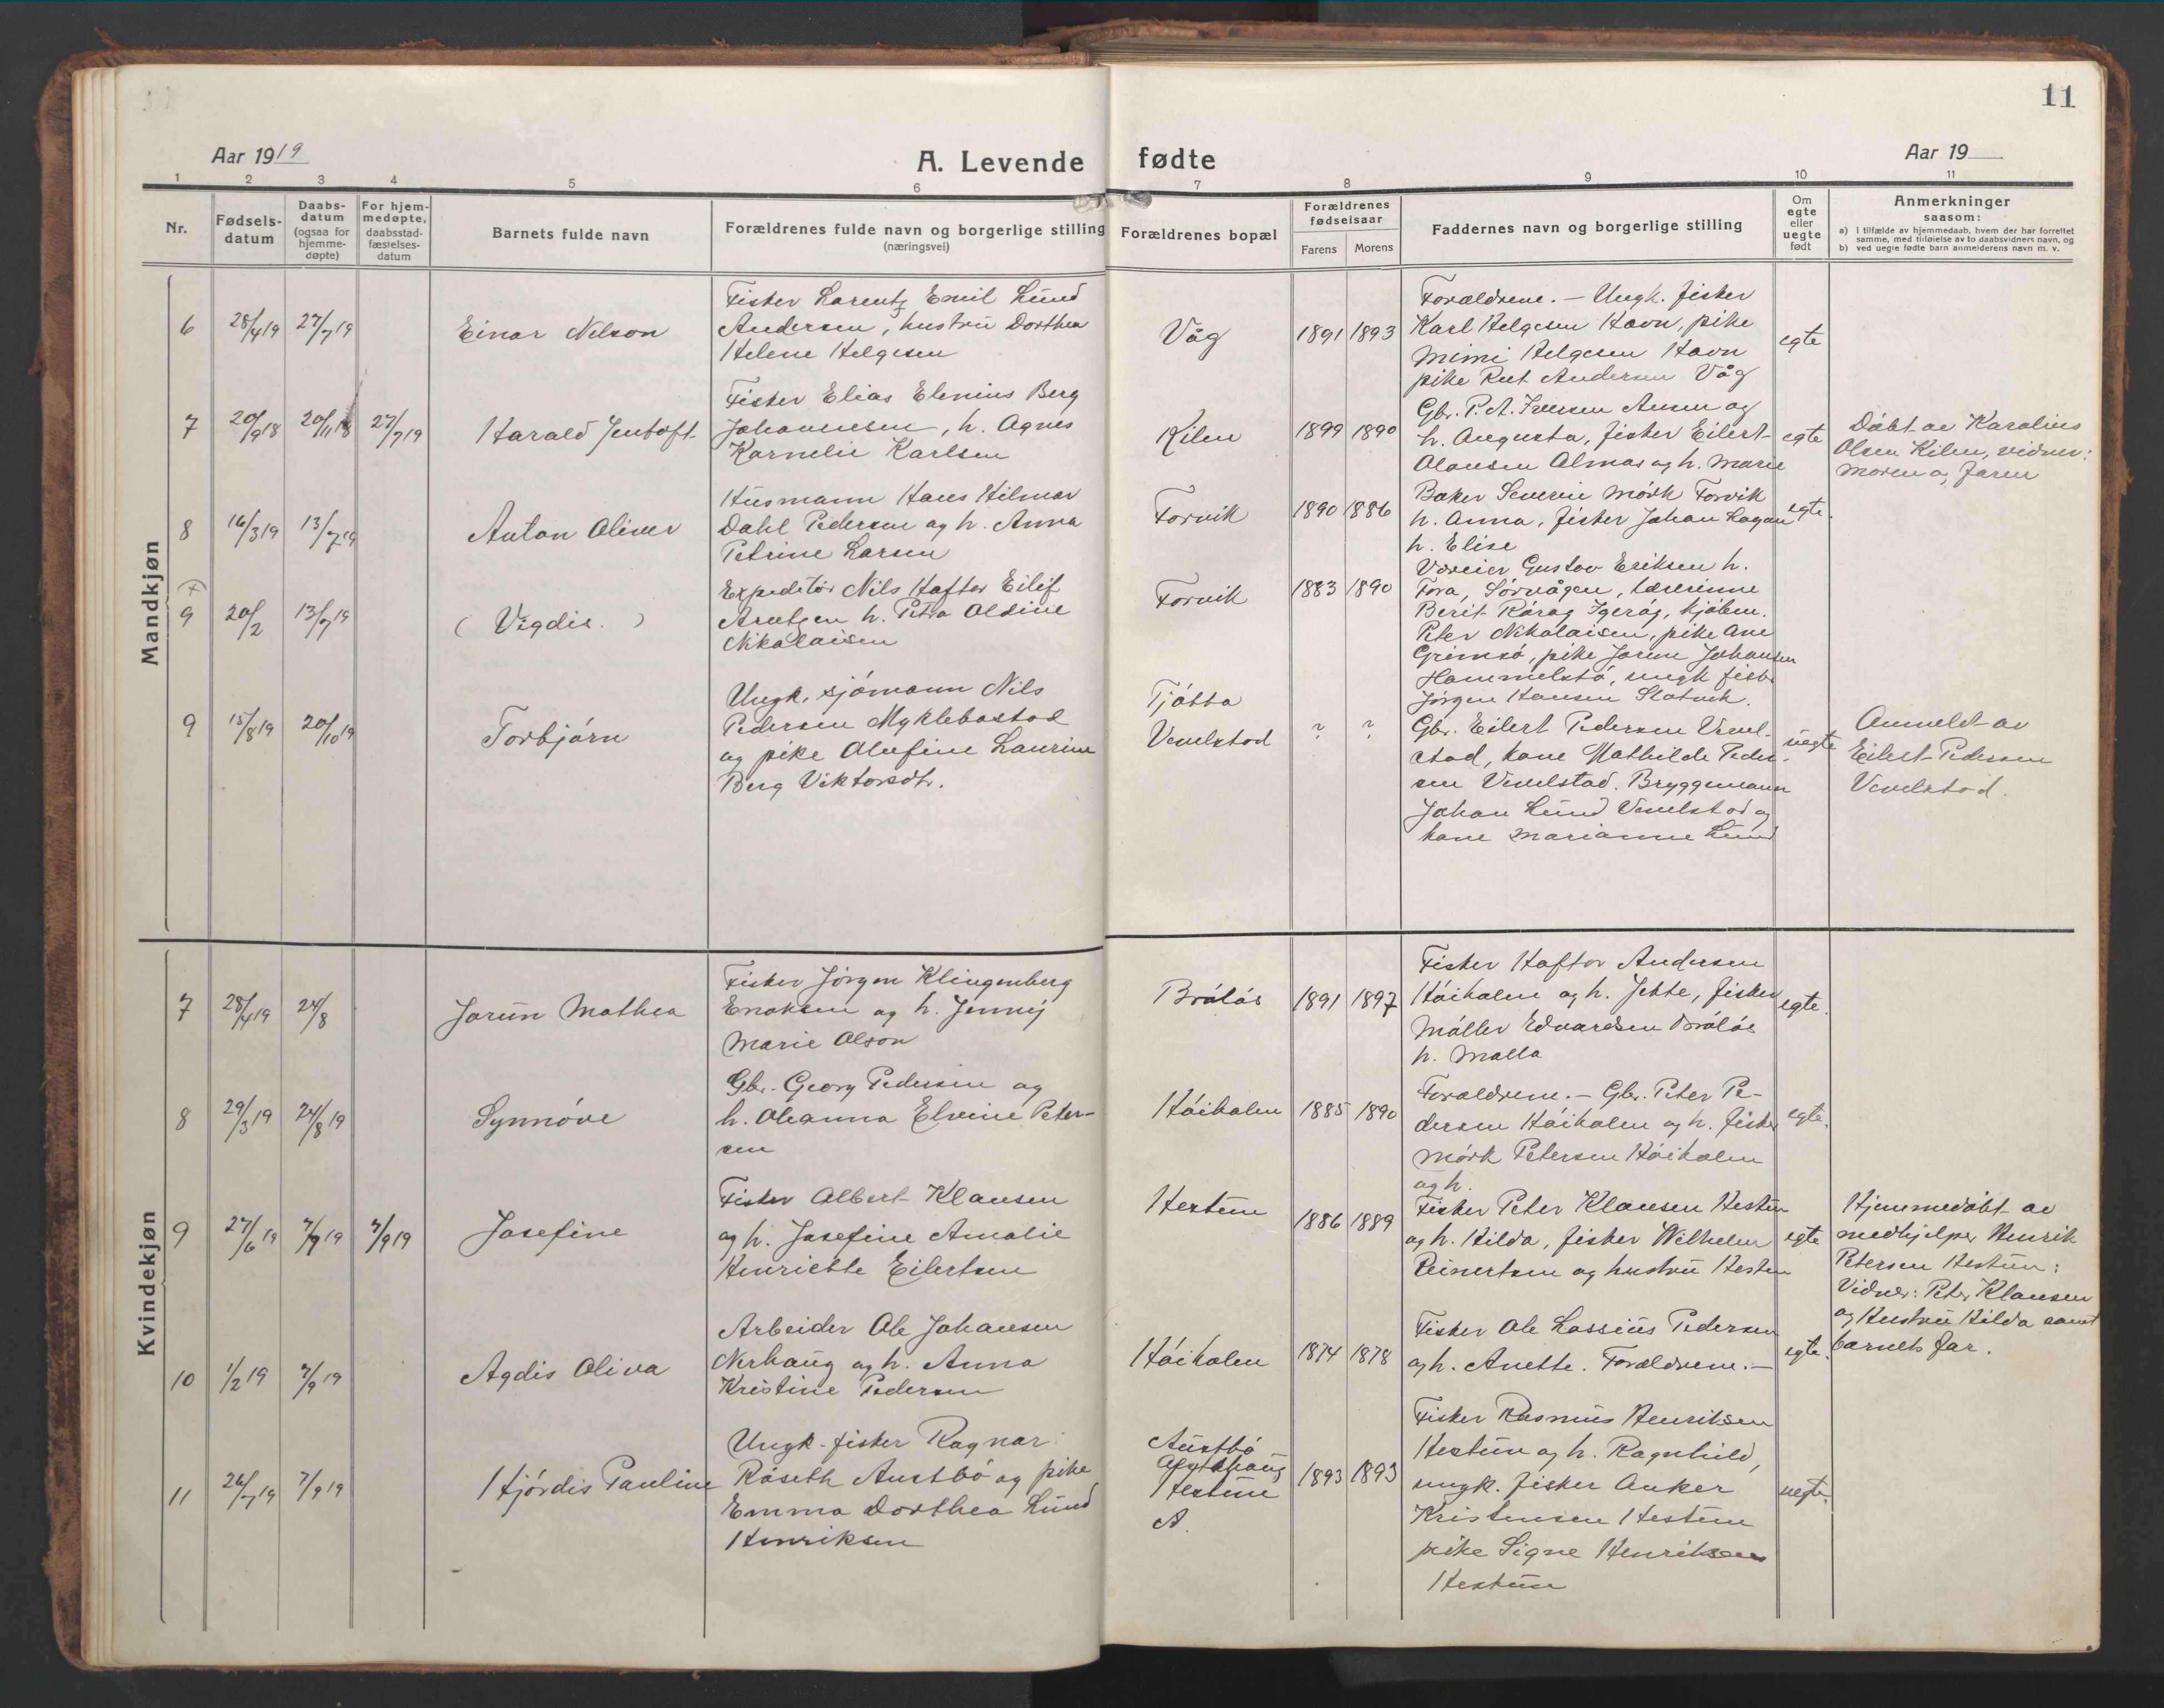 11
Aar 1919
A. Levende fødte
Aar 19
1 2 3 4 5 6 7 8 9 10 11
Nr.
Fødsels-
datum
Daabs-
datum
(ogsaa for
hjemme-
døpte)
For hjem-
medøpte,
daabsstad-
fæstelses-
datum
Barnets fulde navn
Forældrenes fulde navn og borgerlige stilling
(næringsvei)
Forældrenes bopæl
Forældrenes
fødselsaar
Farens Morens
Faddernes navn og borgerlige stilling
Om
egte
eller
uegte
født
Anmerkninger
saasom:
a) i tilfælde av hjemmedaab, hvem der har forrettet
samme, med tilføielse av to daabsvidners navn, og
b) ved uegte fødte barn anmelderens navn m. v.
Mandkjøn
6
28/4 19
27/7 19
Einar Nilson
Fisker Larentz Emil Lund
Andersen, hustru Dorthea
Helene Helgesen
Våg
1891 1893
Forældrene. — Ungk. fisker
Karl Helgesen Havn, pike
Mimi Helgesen Havn
pike Rut Andersen Våg
egte
7
20/9 18
20/11 18
27/7 19
Harald Jentoft
Fisker Elias Elenius Berg
Johannesen, h. Agnes
Kornelie Karlsen
Kilen
1899 1890
Gbr. P. A. Iversen Ausen og
h. Augusta, fisker Eilert
Olausen Almas og h. Marie
egte
Døbt av Karolius
Olsen Kilen, vidner:
moren og faren
8
16/3 19
13/7 19
Anton Oliver
Husmann Hans Hilmar
Dahl Pedersen og h. Anna
Petrine Larsen
Forvik
1890 1886
Baker Severin Mørk Forvik
h. Anna, fisker Johan Hagan
h. Elise
egte.
(+)
9
20/2
13/7 19
( Vigdis. )
Expeditør Nils Haftor Eilif
Arntzen h. Petra Oldine
Nikolaisen
Forvik
1883 1890
Væreier Gustav Eriksen h.
Tora, Sørvågen, lærerinne
Berit Rårag Igerøy, kjøbm.
Peter Nikolaisen, pike Ane
Grimsø, pike Jorun Johansen
Hammelstø, ungk fisk.
Jørgen Hansen Slotvik.
9
15/8 19
20/10 19
Torbjørn
Ungk. sjømann Nils
Pedersen Myklebostad
og pike Olufine Laurine
Berg Viktorsdtr.
Tjøtta
Vevelstad
? ?
Gbr. Eilert Pedersen Vevel-
stad, kone Mathilde Peder-
sen Vevelstad. Bryggemann
Johan Lund Vevelstad og
kone Marianne Lund
uegte
Anmeldt av
Eilert Pedersen
Vevelstad.
Kvindekjøn
7
28/4 19
24/8
Jorun Mathea
Fisker Jørgen Klingenberg
Enoksen og h. Jenny
Marie Olson
Brøløs
1891 1897
Fisker Haftor Andersen
Høiholm og h. Jette, fisker
Møller Edvardsen Brøløs
h. Malla
egte.
8
29/3 19
24/8 19
Synnøve
Gbr. Georg Pedersen og
h. Oleanna Elvine Peter-
sen
Høiholm
1885 1890
Forældrene. — Gbr. Peter Pe-
dersen Høiholm og h. fisker
Mørk Petersen Høiholm
og h.
egte.
9
27/6 19
7/9 19
7/9 19
Josefine
Fisker Albert Klausen
og h. Josefine Amalie
Henriette Eilertsen
Hestun
1886 1889
Fisker Peter Klausen Hestun
og h. Hilda, fisker Wilhelm
Reinertsen og hustru Hestun
egte
Hjemmedøbt av
medhjelper Henrik
Petersen Hestun:
Vidner: Peter Klausen
og Hustru Hilda samt
barnets far.
10
1/2 19
7/9 19
Agdis Oliva
Arbeider Ole Johansen
Nerhaug og h. Anna
Kristine Pedersen
Høiholm
1874 1878
Fisker Ole Lassius Pedersen
og h. Anette. Forældrene. —
egte.
11
26/7 19
7/9 19
Hjørdis Pauline
Ungk. fisker Ragnar
Røseth Austbø og pike
Emma Dorthea Lund
Henriksen
Austbø
Hestun
A.
1893 1893
Fisker Rasmus Henriksen
Hestun og h. Ragnhild,
ungk. fisker Anker
Kristensen Hestun
pike Signe Henriksen
Hestun
uegte.